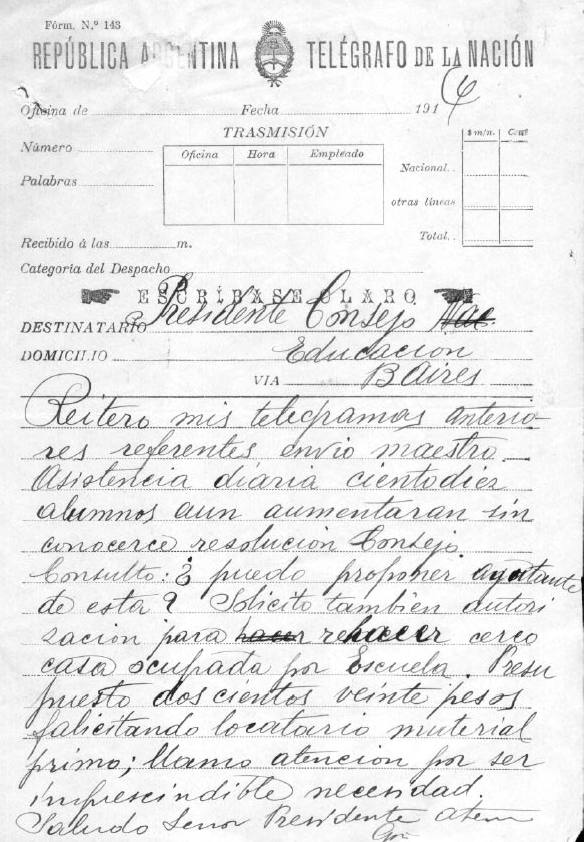 Fórm. N.º 143
REPÚBLICA ARGENTINA TELÉGRAFO DE LA NACIÓN
Oficina de Fecha 1914
TRASMISIÓN
$ m/n. Cent
Número
Oficina Hora Empleado
Nacional
Palabras
otras líneas
Total
Recibido á las m.
Categoría del Despacho
ESCRÍBASE CLARO
DESTINATARIO Presidente Consejo Nac.
DOMICILIO Educacion
VIA B Aires
Reitero mis telegramas anterio-
res referentes envio maestro
Asistencia diária cientodiez
alumnos aun aumentaran sin
conocerce resolución Consejo.
Consulto: ¿ puedo proponer ayutante
de esta? Solicito tambien autori
zacion para hacer rehacer cerco
casa ocupada por Escuela. Presu
puesto doscientos veinte pesos
falicitando locatario material
primo; llamo atencion por ser
imprescindible necesidad.
Saludo Senor Presidente atem